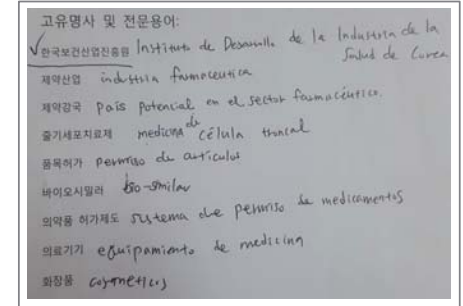 고유명사 및 전문용어:
✓한국보건산업진흥원 Instituto de Desarrollo de la Industria de la Salud de Corea
제약산업 industria farmaceutica
제약강국 país potencial en el sector farmacéutico.
줄기세포치료제 medicina de célula troncal
품목허가 permiso de articulos
바이오시밀러 bio-similar
의약품 허가제도 sistema de permiso de medicamentos
의료기기 equipamiento de medicina
화장품 cosméticos